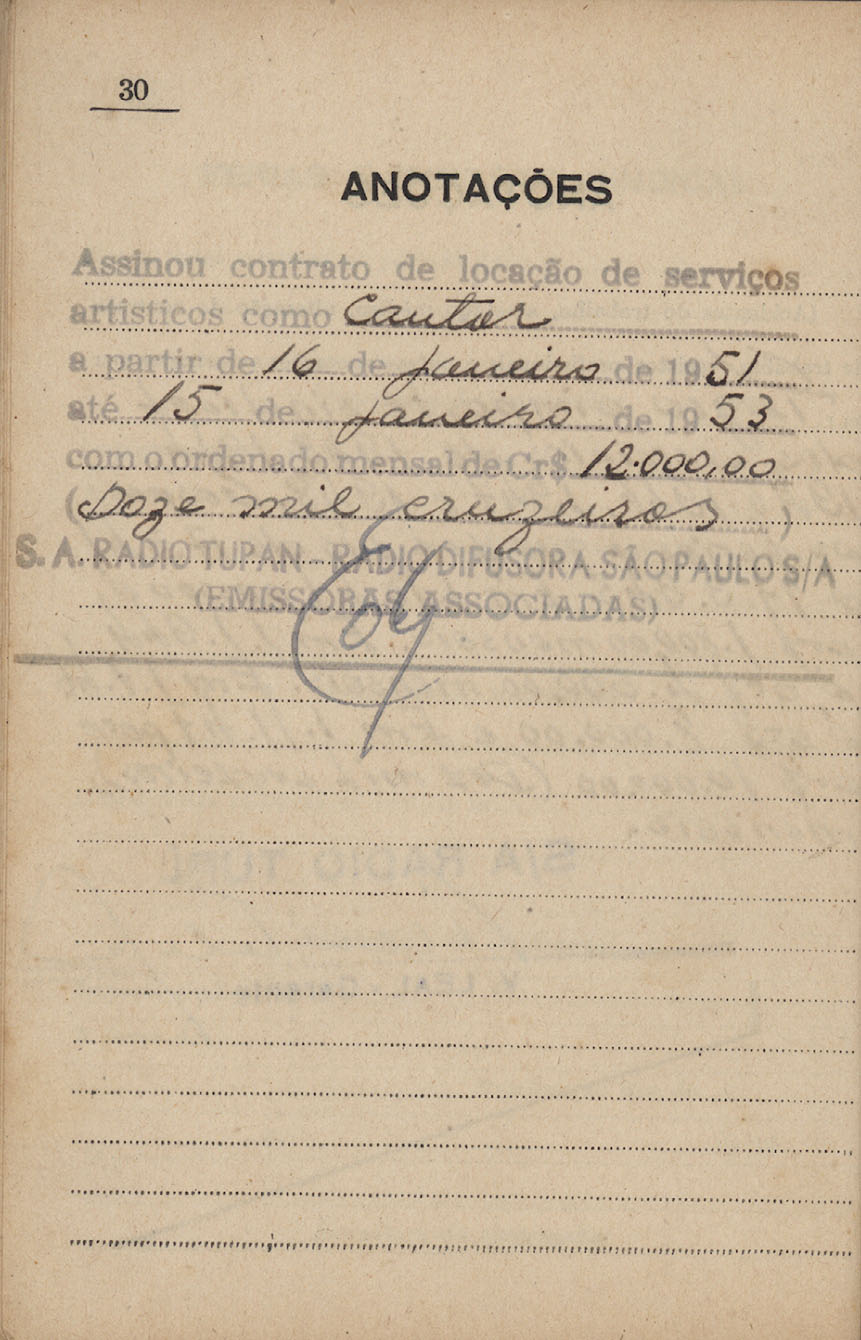 30
ANOTAÇÕES
Assinou contrato de locação de serviços
artisticos como Cantor
a partir de 16 de janeiro de 1951
até 15 de janeiro de 1953
com o ordenado mensal de Cr$ 12.000,00
(Doze mil cruzeiros)
S. A. RADIO TUPAN - RADIO DIFUSORA SÃO PAULO S/A
(EMISSORAS ASSOCIADAS)